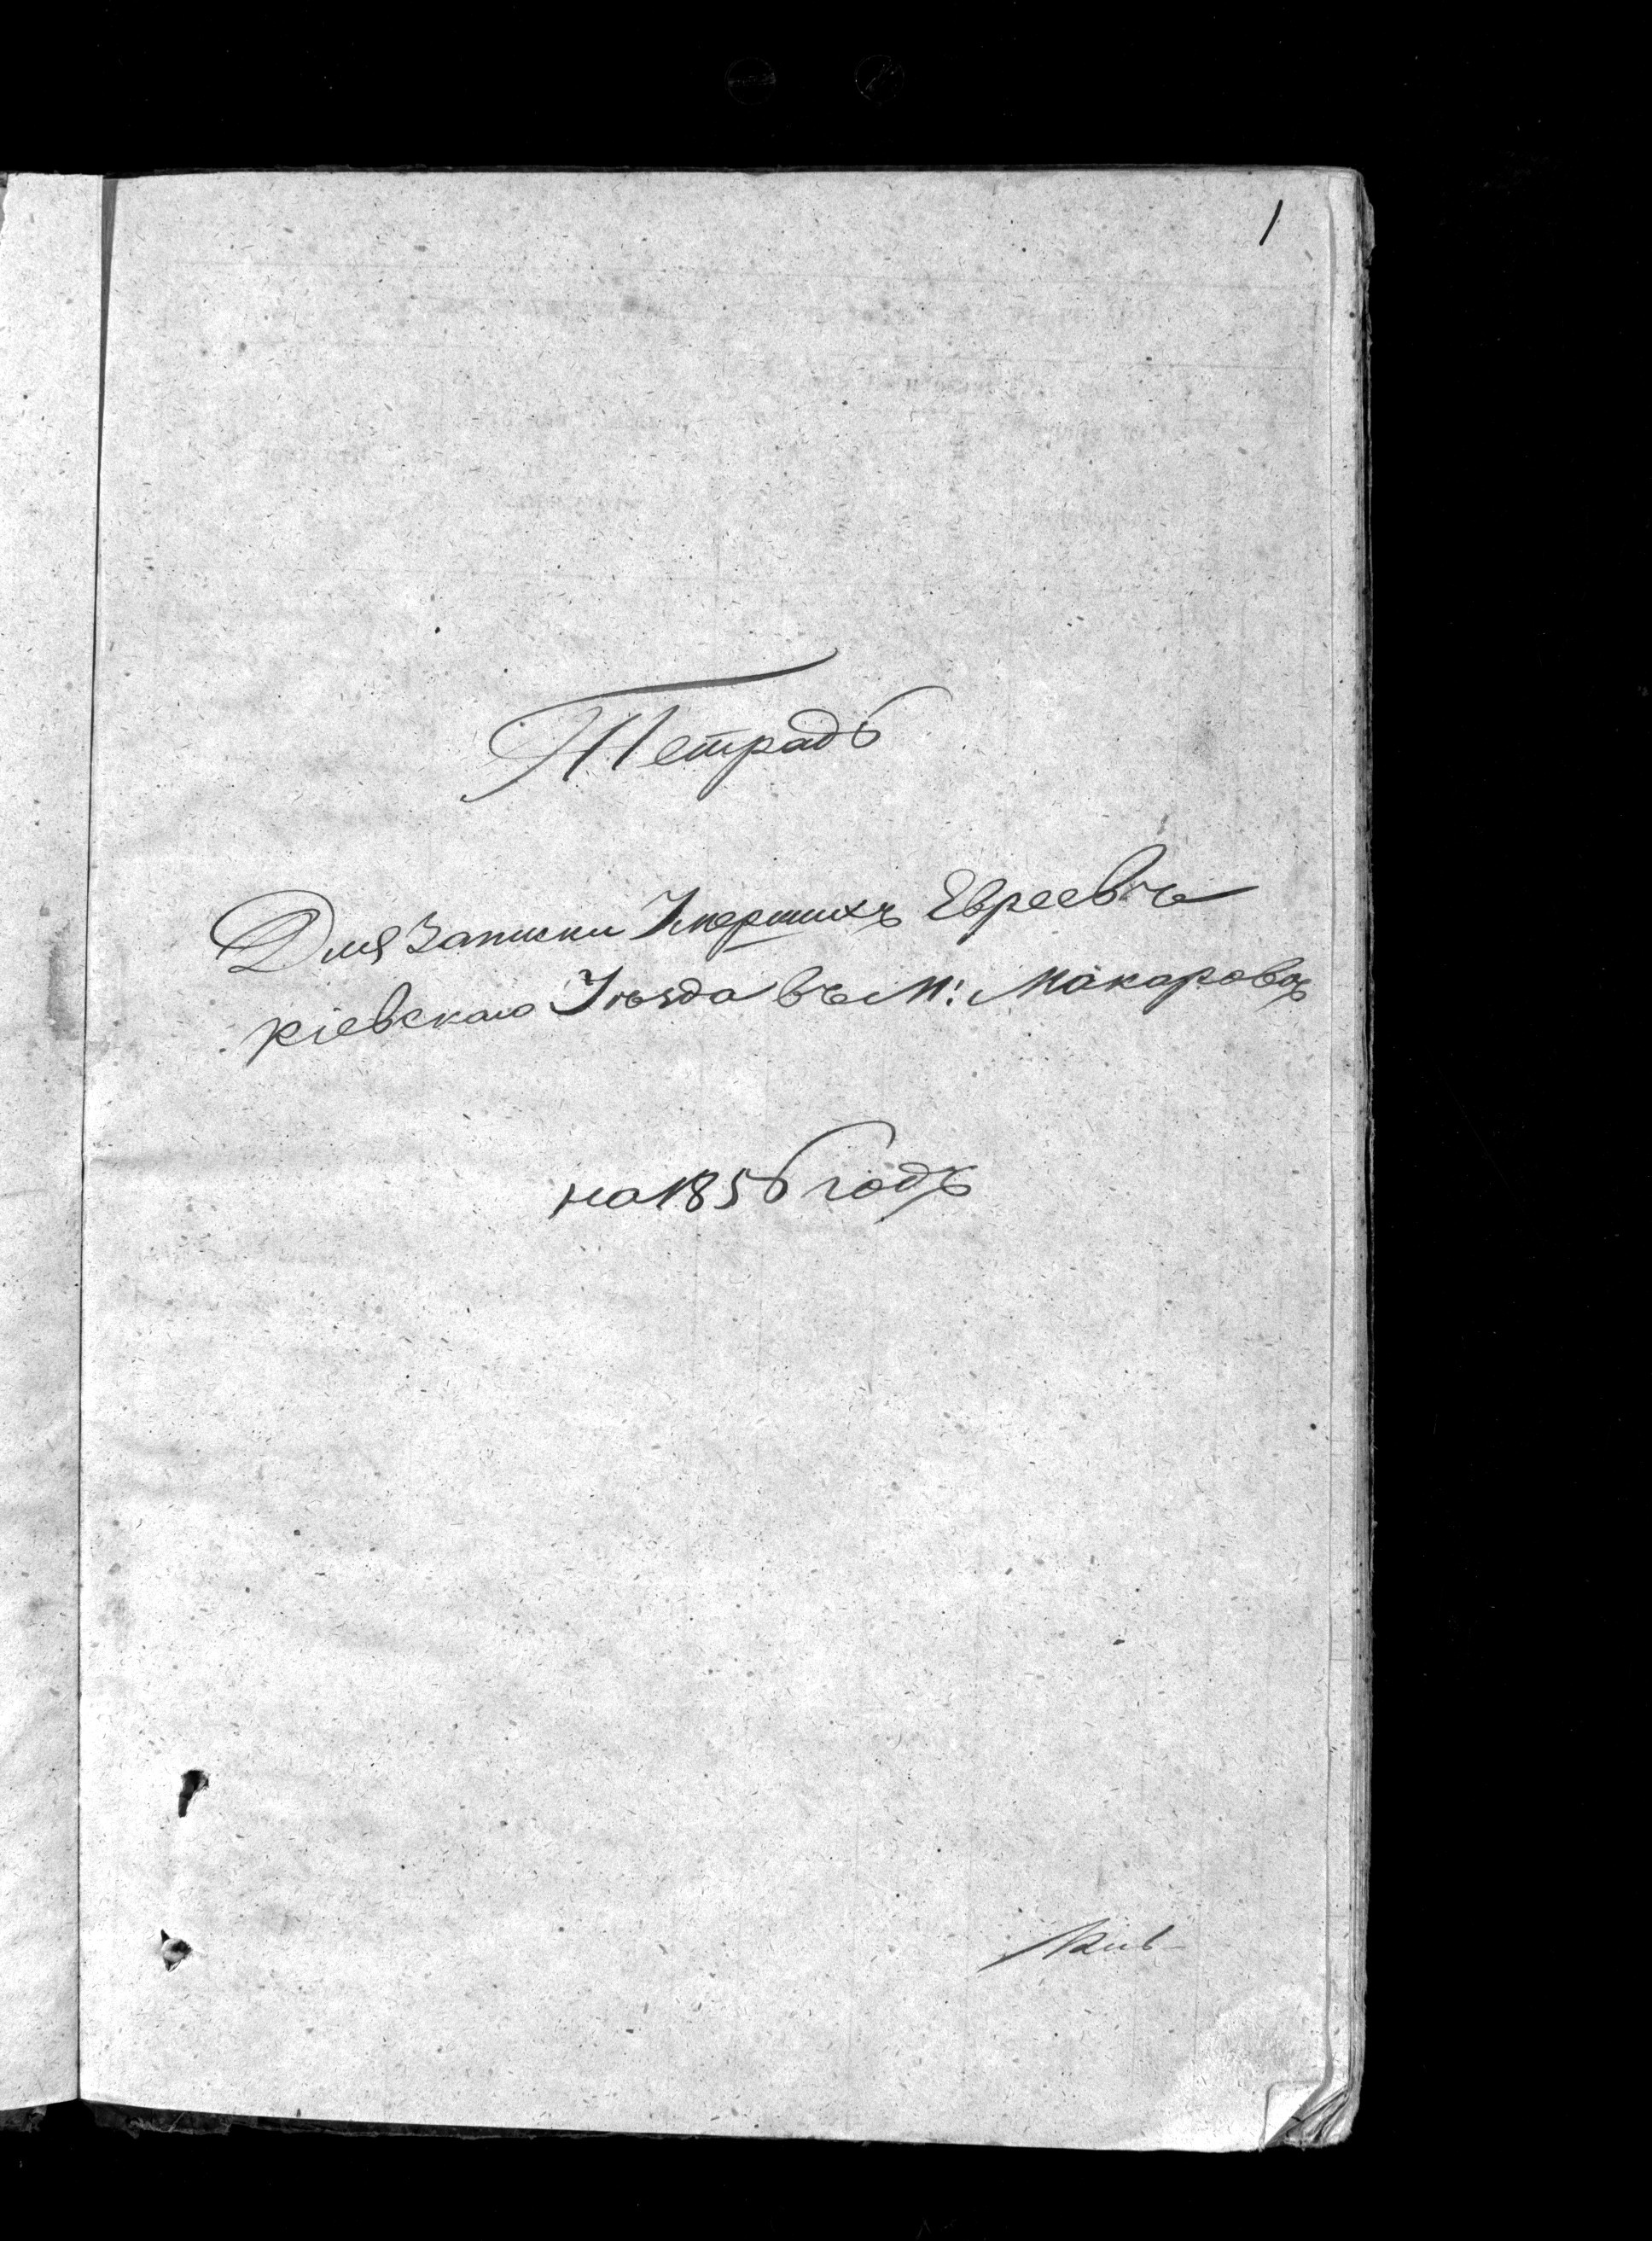 1
Тетрадь
Для Записки Умершихъ Евреевъ
Кіевскаго Уѣзда въ М: Макаровѣ
на 1856 годъ
Кіев-